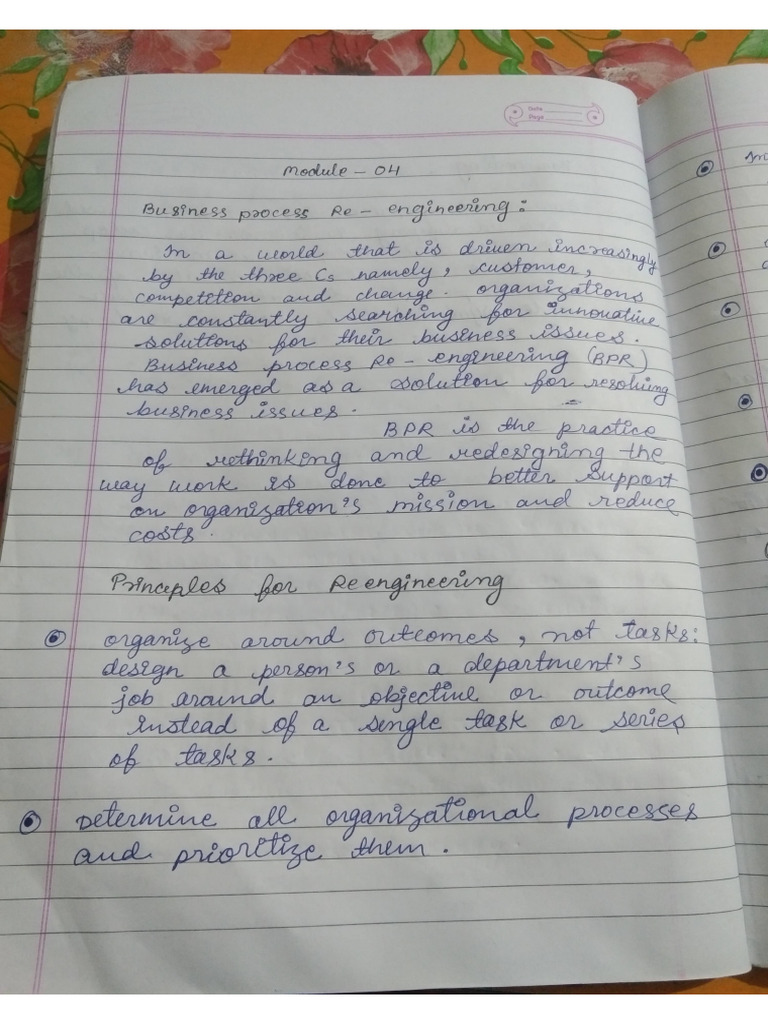 Date
Page
Module - 04
Business process Re - engineering :
In a world that is driven increasingly
by the three Cs namely, customer,
competition and change. organizations
are constantly searching for innovative
solutions for their business issues.
Business process Re - engineering (BPR)
has emerged as a solution for resolving
business issues.
BPR is the practice
of rethinking and redesigning the
way work is done to better support
an organization's mission and reduce
costs.
Principles for Reengineering
organize around outcomes, not tasks:
design a person's or a department's
job around an objective or outcome
instead of a single task or series
of tasks.
Determine all organizational processes
and prioritize them.